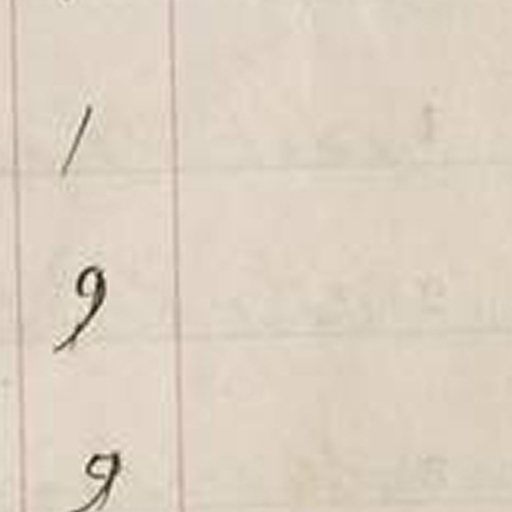 1
9
9